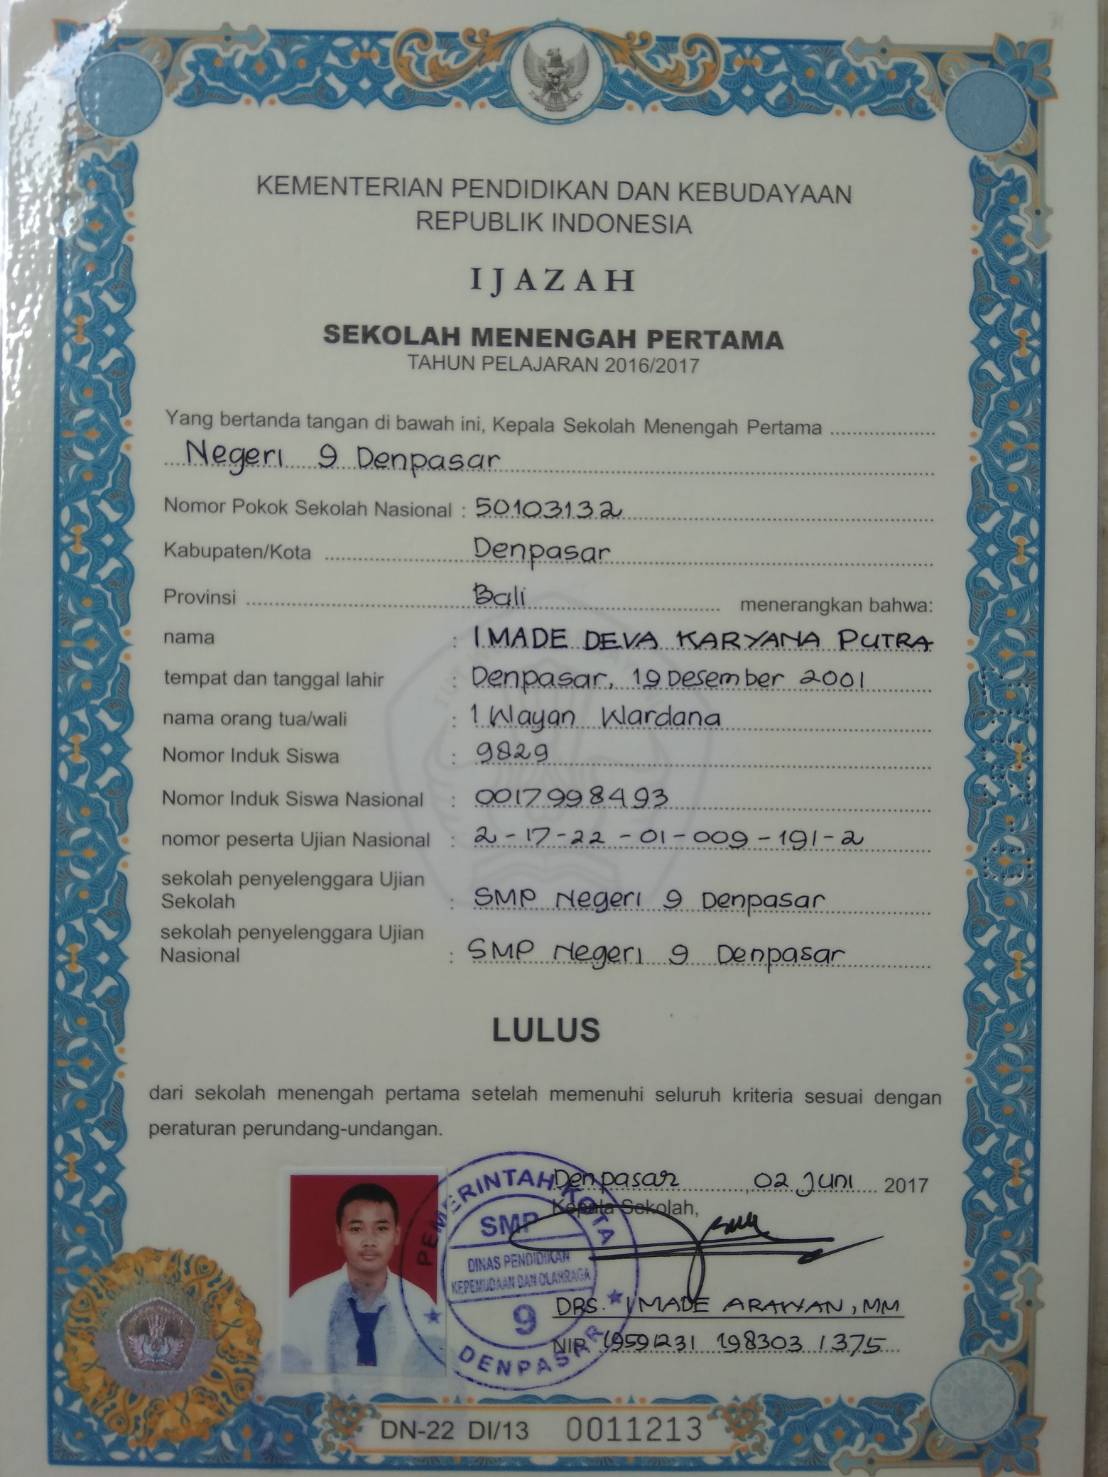 KEMENTERIAN PENDIDIKAN DAN KEBUDAYAAN
REPUBLIK INDONESIA
IJAZAH
SEKOLAH MENENGAH PERTAMA
TAHUN PELAJARAN 2016/2017
Yang bertanda tangan di bawah ini, Kepala Sekolah Menengah Pertama
Negeri 9 Denpasar
Nomor Pokok Sekolah Nasional : 50103132
Kabupaten/Kota Denpasar
Provinsi Bali menerangkan bahwa:
nama : I MADE DEVA KARYANA PUTRA
tempat dan tanggal lahir : Denpasar, 19 Desember 2001
nama orang tua/wali : I Wayan Wardana
Nomor Induk Siswa : 9829
Nomor Induk Siswa Nasional : 0017998493
nomor peserta Ujian Nasional : 2-17-22-01-009-191-2
sekolah penyelenggara Ujian
Sekolah : SMP Negeri 9 Denpasar
sekolah penyelenggara Ujian
Nasional : SMP Negeri 9 Denpasar
LULUS
dari sekolah menengah pertama setelah memenuhi seluruh kriteria sesuai dengan
peraturan perundang-undangan.
Denpasar, 02 Juni 2017
Kepala Sekolah,
PEMERINTAH KOTA
SMP
DINAS PENDIDIKAN
KEPEMUDAAN DAN OLAHRAGA
9
DENPASAR
DRS. I MADE ARAWAN, MM
NIP. 19591231 198303 1 375
DN-22 DI/13 0011213